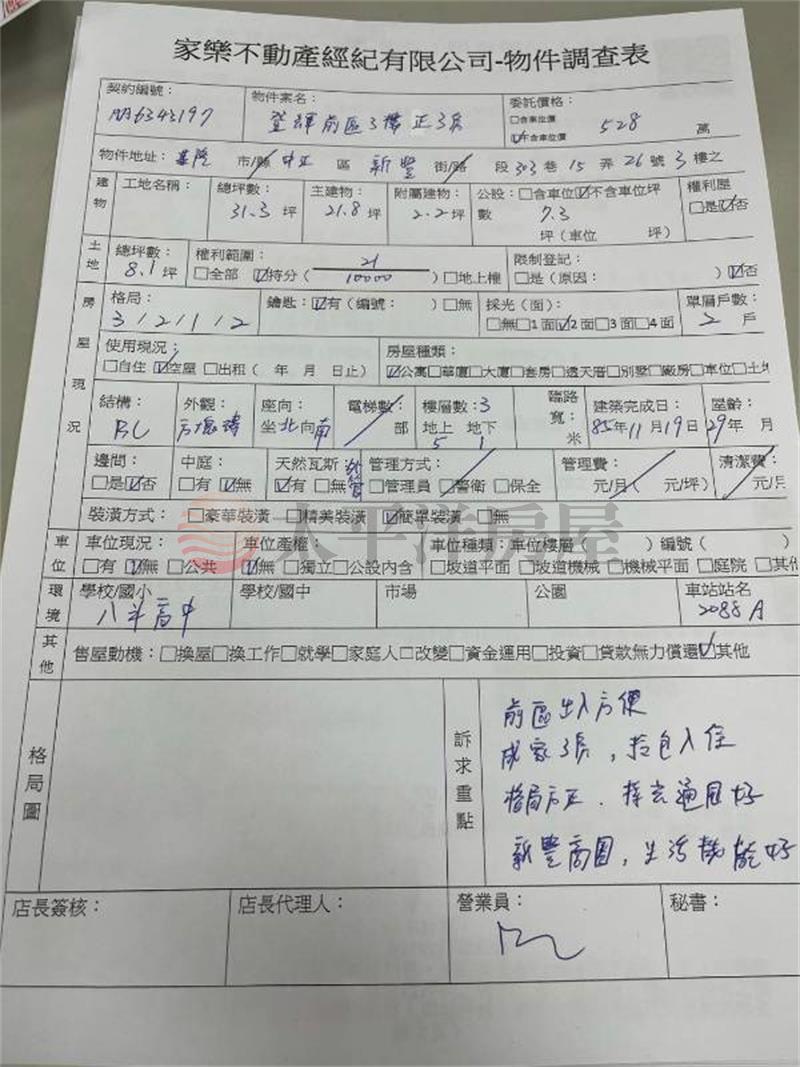 家樂不動產經紀有限公司-物件調查表
契約編號： AA6343197 物件案名： 登輝前區3樓正3房 委託價格： □含車位價 ☑不含車位價 528 萬
物件地址： 基隆 市/縣 中正 區 新豐 街/路 段 303 巷 15 弄 26 號 3 樓之
建物 工地名稱： 總坪數： 31.3 坪 主建物： 21.8 坪 附屬建物： 2.2 坪 公設：□含車位☑不含車位坪數 7.3 坪（車位 坪） 權利屋 □是☑否
土地 總坪數： 8.1 坪 權利範圍： □全部 ☑持分（ 21/10000 ）□地上權 限制登記： □是（原因： ）☑否
房屋現況 格局： 3/2/1/2 鑰匙：☑有（編號： ）□無 採光（面）： □無□1面☑2面□3面□4面 單層戶數： 2 戶
使用現況： □自住 ☑空屋 □出租（ 年 月 日止） 房屋種類： ☑公寓□華廈□大廈□套房□透天厝□別墅□廠房□車位□土地
結構： RC 外觀： 座向： 坐北向南 電梯數： 部 樓層數：3 地上 5 地下 1 臨路寬： 米 建築完成日： 85年11月19日 屋齡： 29年 月
邊間： □是☑否 中庭： □有☑無 天然瓦斯： ☑有□無 管理方式： □管理員□警衛□保全 管理費： 元/月（ 元/坪） 清潔費： 元/月
裝潢方式：□豪華裝潢 □精美裝潢 ☑簡單裝潢 □無
太平洋房屋
車位 車位現況： □有☑無 □公共 車位產權： ☑無 □獨立□公設內含 車位種類：車位樓層（ ）編號（ ） □坡道平面 □坡道機械□機械平面□庭院 □其他
環境 學校/國小 八斗高中 學校/國中 市場 公園 車站站名 2088A
其他 售屋動機：□換屋□換工作□就學□家庭人□改變□資金運用□投資□貸款無力償還☑其他
格局圖 訴求重點
前區出入方便
成家3房，拎包入住
格局方正．採光通風好
新豐商圈，生活機能好
店長簽核： 店長代理人： 營業員： 秘書：